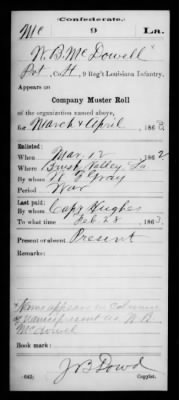 Confederate.
Mc 9 La.
N. B. McDowell
Pvt, Co. H, 9 Reg't Louisiana Infantry.
Appears on
Company Muster Roll
of the organization named above,
for March & April, 1863.
Enlisted:
When Mar. 12, 1862
Where Brush Valley, La
By whom
Period War
Last paid:
By whom Capt Hughes
To what time Feb 28, 1863.
Present or absent Present
Remarks:
Name appears in column
of names present as N B
McDowel
Book mark:
J B Dowd
(642) Copyist.